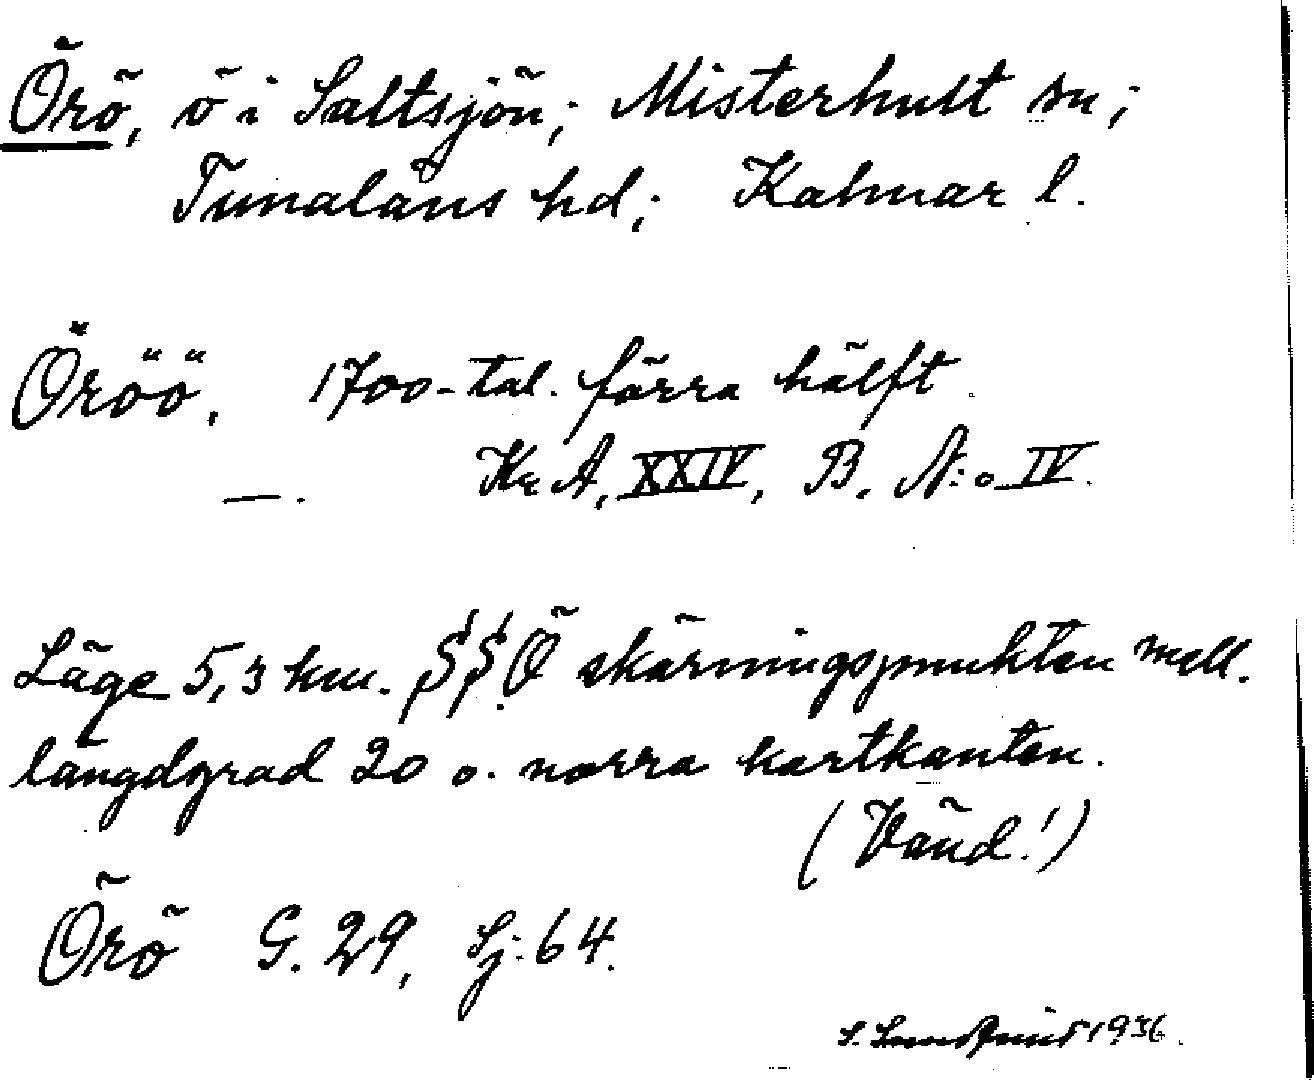 Örö, ö i Saltsjön; Misterhult sn;
Tunaläns hd; Kalmar l.
Öröö, 1700-tal. förra hälft.
—. Kr A, XXIV, B. N:o IV.
Läge 5,3 km. SSÖ skärningspunkten mell.
längdgrad 20 o. norra kartkanten.
(Vänd!)
Örö G. 29, Sj. 64.
S. 1936.